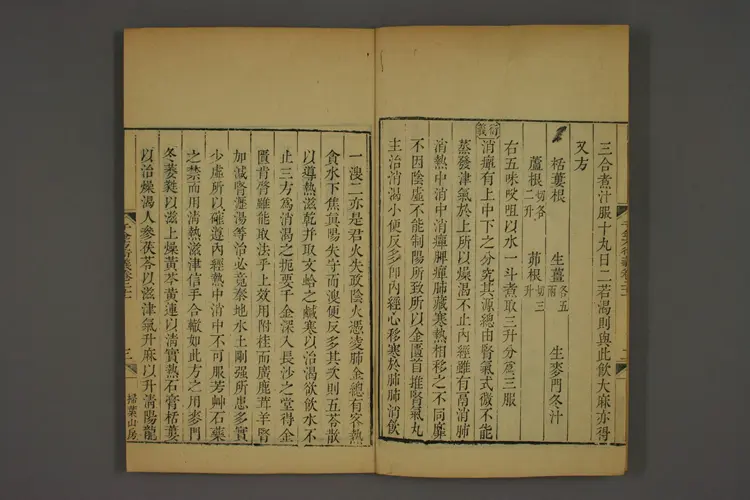 三合煮汁服十九日二若渴則與此飲大麻亦得
又方
栝蔞根　生薑各五兩　生麥門冬汁
蘆根切各二升　茆根切三升
右五味㕮咀以水一斗煮取三升分爲三服
衍義
消癉有上中下之分究其源總由腎氣式微不能
蒸發津氣於上所以燥渴不止內經雖有鬲消肺
消熱中消中消癉脾癉肺臟寒熱相移之不同靡
不因陰虛不能制陽所致所以金匱首推腎氣丸
主治消渴小便反多卽內經心移寒於肺肺消飲
千金方衍義卷二十一
二
一溲二亦是君火失政陰火慿凌肺金總有客熱
貪水下焦眞陽失守而溲便反多其次則五苓散
以導熱滋乾并取文蛤之鹹寒以治渴欲飲水不
止三方爲消渴之扼要千金深入長沙之堂得金
匱肯綮雖能取法乎上效用附桂而廣鹿茸羊腎
加減腎瀝湯等治必竟秦地水土剛强所患多實
少虛所以確遵內經熱中消中不可服芳艸石藥
之禁而用清熱滋津信手合轍如此方之用麥門
冬葳蕤以滋上燥黃芩黃蓮以清實熱石膏栝蔞
以治燥渴人參茯苓以滋津氣升麻以升清陽龍
千金方衍義卷二十一
三
掃葉山房